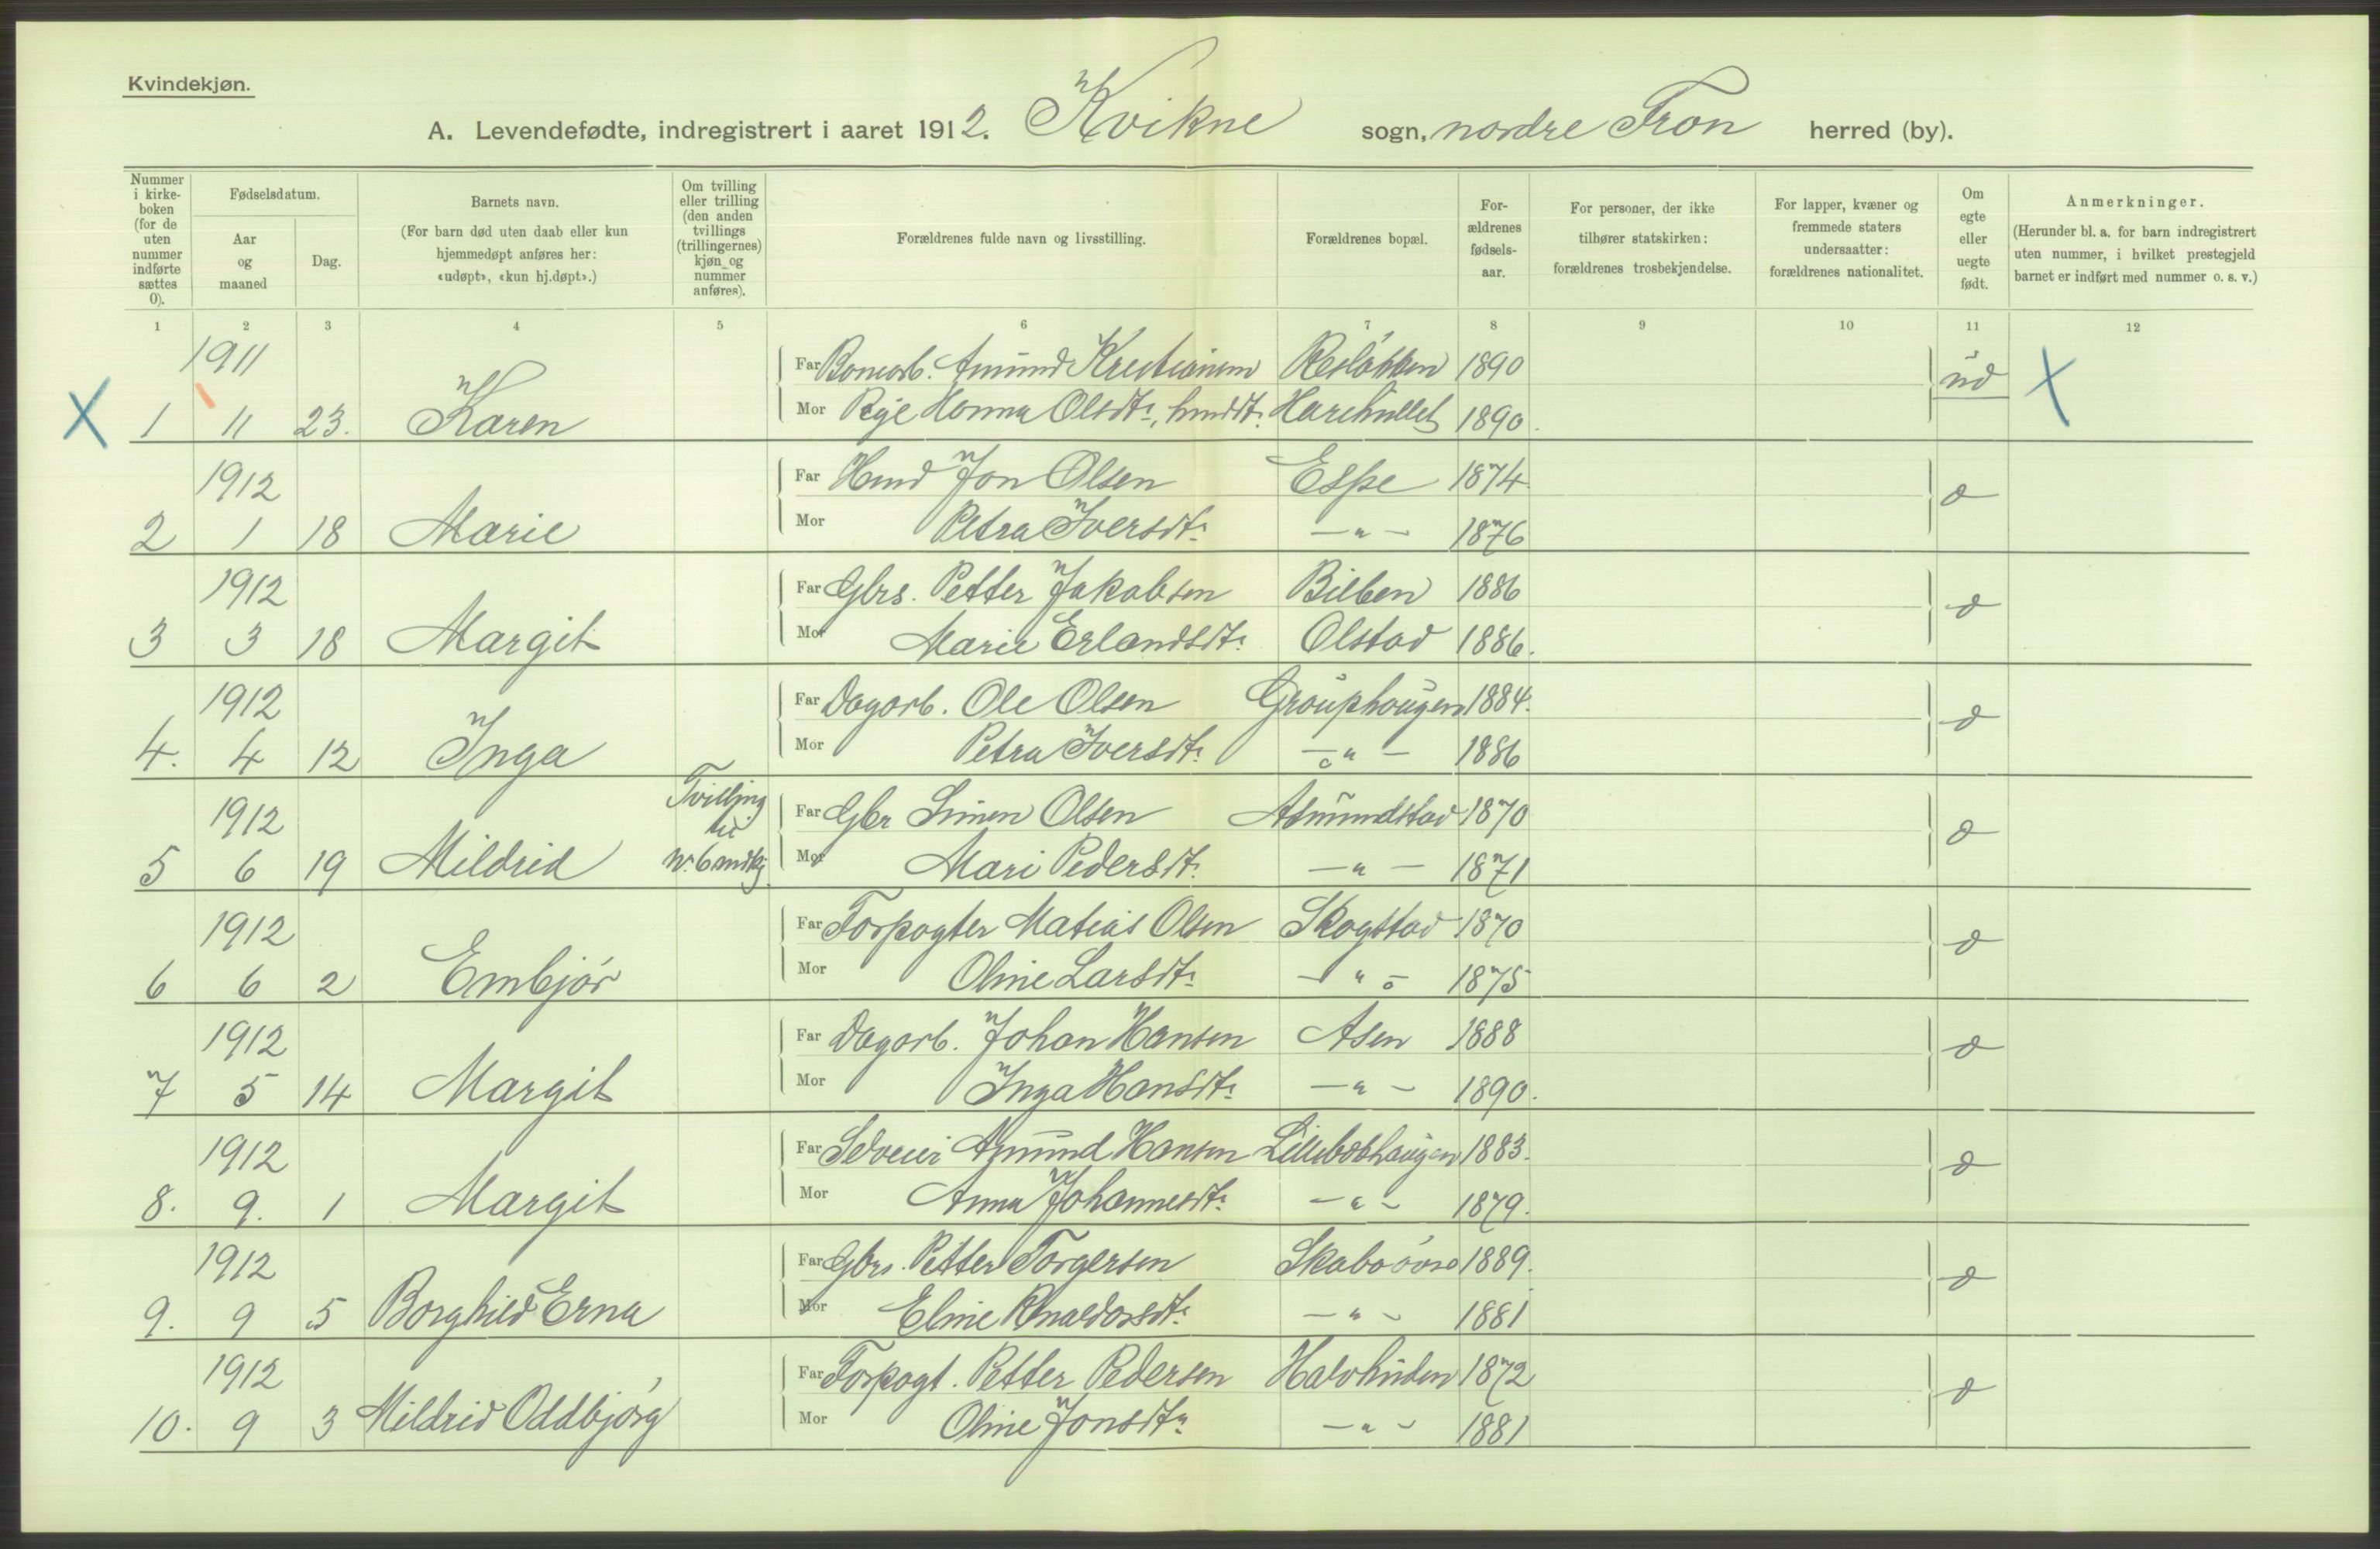 Kvindekjøn.
A. Levendefødte, indregistrert i aaret 1912. Kvikne sogn, nordre Fron herred (by).
Nummer i kirke-boken (for de uten nummer indførte sættes 0).
Fødselsdatum.
Aar og maaned
Dag.
Barnets navn.
(For barn død uten daab eller kun hjemmedøpt anføres her: «udøpt», «kun hj.døpt».)
Om tvilling eller trilling (den anden tvillings (trillingernes) kjøn og nummer anføres).
Forældrenes fulde navn og livsstilling.
Forældrenes bopæl.
For-ældrenes fødsels-aar.
For personer, der ikke tilhører statskirken: forældrenes trosbekjendelse.
For lapper, kvæner og fremmede staters undersaatter: forældrenes nationalitet.
Om egte eller uegte født.
Anmerkninger.
(Herunder bl. a. for barn indregistrert uten nummer, i hvilket prestegjeld barnet er indført med nummer o. s. v.)
1 2 3 4 5 6 7 8 9 10 11 12
1911 Far Amund Kristiansen 1890
X 1 11 23. Karen Mor Hanna Olsdtr, 1890. X
1912 Far Jon Olsen Espe 1874
2 1 18 Marie Mor Petra Iversdtr – " – 1876
1912 Far Gbrs. Petter Jakobsen Bilben 1886
3 3 18 Margit Mor Marie Erlandsdtr Olstad 1886.
1912 Far Dagarb. Ole Olsen Grouphougen 1884.
4. 4 12 Inga Mor Petra Iversdtr – " – 1886
1912 Tvilling til Far Gbr Simen Olsen Asmundstad 1870
5 6 19 Mildrid nr. 6 mdkj. Mor Mari Pedersdtr – " – 1871
1912 Far Forpagter Matias Olsen Skogstad 1870
6 6 2 Embjör Mor Oline Larsdtr – " – 1875
1912 Far Dagarb. Johan Hansen Åsen 1888
7 5 14 Margit Mor Inga Hansdtr – " – 1890.
1912 Far Selveier Amund Hansen 1883.
8. 9. 1 Margit Mor Anna Johannesdtr – " – 1879.
1912 Far Gbrs. Petter Torgersen 1889.
9. 9 5 Borghild Erna Mor Eline – " – 1881
1912 Far Forpagt. Petter Pedersen 1872
10. 9 3 Mildrid Oddbjörg Mor Oline Jonsdtr – " – 1881